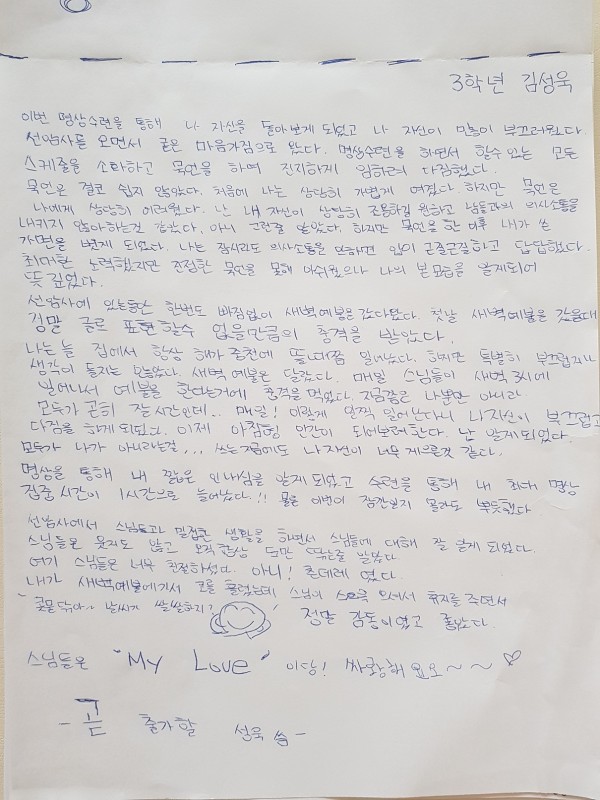 3학년 김성욱
이번 명상수련을 통해 나 자신을 돌아보게 되었고 나 자신이 많이 부끄러웠다.
선암사를 오면서 굳은 마음가짐으로 왔다. 명상수련을 하면서 할수있는 모든
스케줄을 소화하고 묵언을 하며 진지하게 임하려 다짐했다.
묵언은 결코 쉽지 않았다. 처음에 나는 상당히 가볍게 여겼다. 하지만 묵언은
나에게 상당히 어려웠다. 난 내 자신이 상당히 조용하길 원하고 남들과의 의사소통을
내키지 않아하는건 같았다. 아니 그런줄 알았다. 하지만 묵언을 한 이후 내가 쓴
가면을 벗게 되었다. 나는 잠시라도 의사소통을 안하면 입이 근질근질하고 답답했다.
최대한 노력했지만 조점한 묵언을 못해 아쉬웠으나 나의 본모습을 알게되어
뜻 깊었다.
선암사에 있는동안 한번도 빠짐없이 새벽예불을 갔다왔다. 첫날 새벽예불을 갔을때
정말 글로 표현할수 없을만큼의 충격을 받았다.
나는 늘 집에서 항상 해가 중천에 뜰때쯤 일어났다. 하지만 특별히 부끄럽거나
생각이 들지는 않았다. 새벽 예불은 달랐다. 매일 스님들이 새벽 3시에
일어나서 예불을 한다는거에 충격을 먹었다. 지금쯤은 나뿐만 아니라
모두가 곤히 잘시간인데.. 매일! 이렇게 일찍 일어난다니 나자신이 부끄럽고
다짐을 하게 되었다. 이제 아침형 인간이 되어보려한다. 난 알게되었다.
모두가 나가 아니라는걸... 쓰는지금에도 나자신이 너무 게으른것 같다.
명상을 통해 내 짧은 인내심을 알게되었고 수련을 통해 내 최대 명상
집중시간이 1시간으로 늘어났다.!! 물론 이번이 잠깐일지 몰라도 뿌듯했다
선암사에서 스님들과 밀접한 생활을 하면서 스님들에 대해 잘 알게 되었다.
스님들은 웃지도 않고 오직 항상 도만 닦는줄 알았다
여기 스님들은 너무 친절하셨다. 아니! 츤데레 였다.
내가 새벽예불에가서 코를 흘렸는데 스님이 스으윽 오셔서 휴지를 주면서
"콧물 닦아.. 날씨가 쌀쌀하지?" 정말 감동이였고 좋았다.
스님들은 "My Love" 이당! 싸랑해요오~~♡
- 곧 출가할 성욱 씀 -